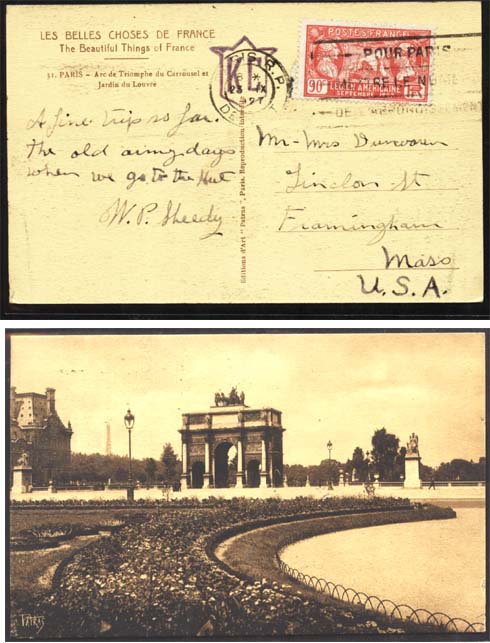 LES BELLES CHOSES DE FRANCE
The Beautiful Things of France
51. PARIS - Arc de Triomphe du Carrousel et
Jardin du Louvre
POSTES FRANCE
POUR PARIS
90c LEGION AMERICAINE
SEPTEMBRE
23 IX
27
A fine trip so far.
The old army days
when we go to the Hut
W. P. Sheedy
Editions d'Art "Patras", Paris. Reproduction
Mr - Mrs
Lincoln St
Framingham
Mass
U.S.A.
PATRAS